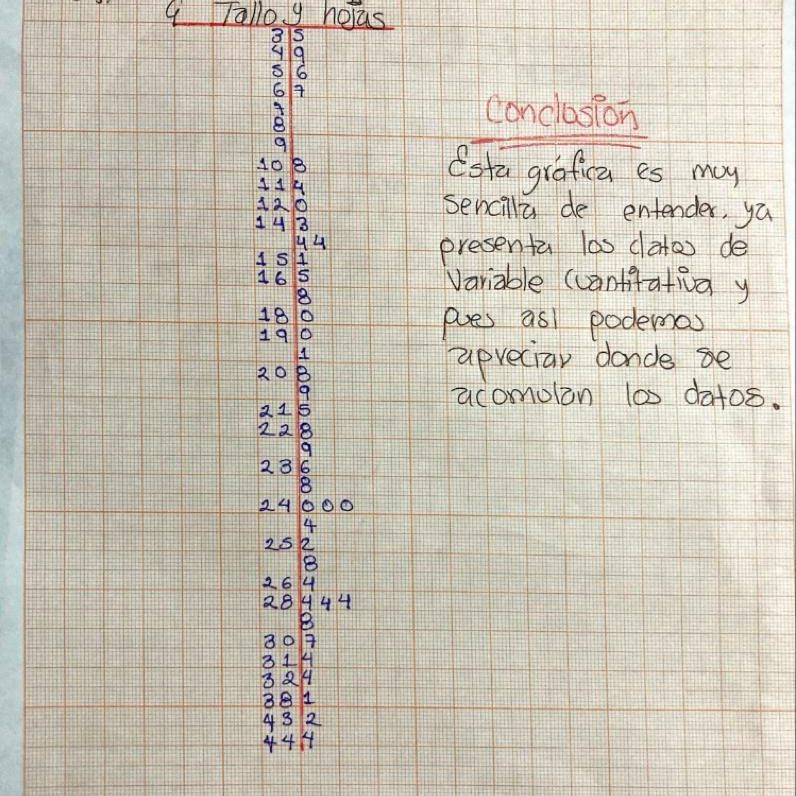 4 Tallo y hojas
3 5
4 9
5 6
6 7
7
8
9
10 8
11 4
12 0
14 3
4 4
15 1
16 5
8
18 0
19 0
1
20 8
9
21 5
22 8
9
23 6
8
24 0 0 0
4
25 2
8
26 4
28 4 4 4
8
30 7
31 4
32 4
38 1
43 2
44 4
Conclusión
Esta gráfica es muy
sencilla de entender, ya
presenta los datos de
Variable cuantitativa y
pues así podemos
apreciar donde se
acomulan los datos.